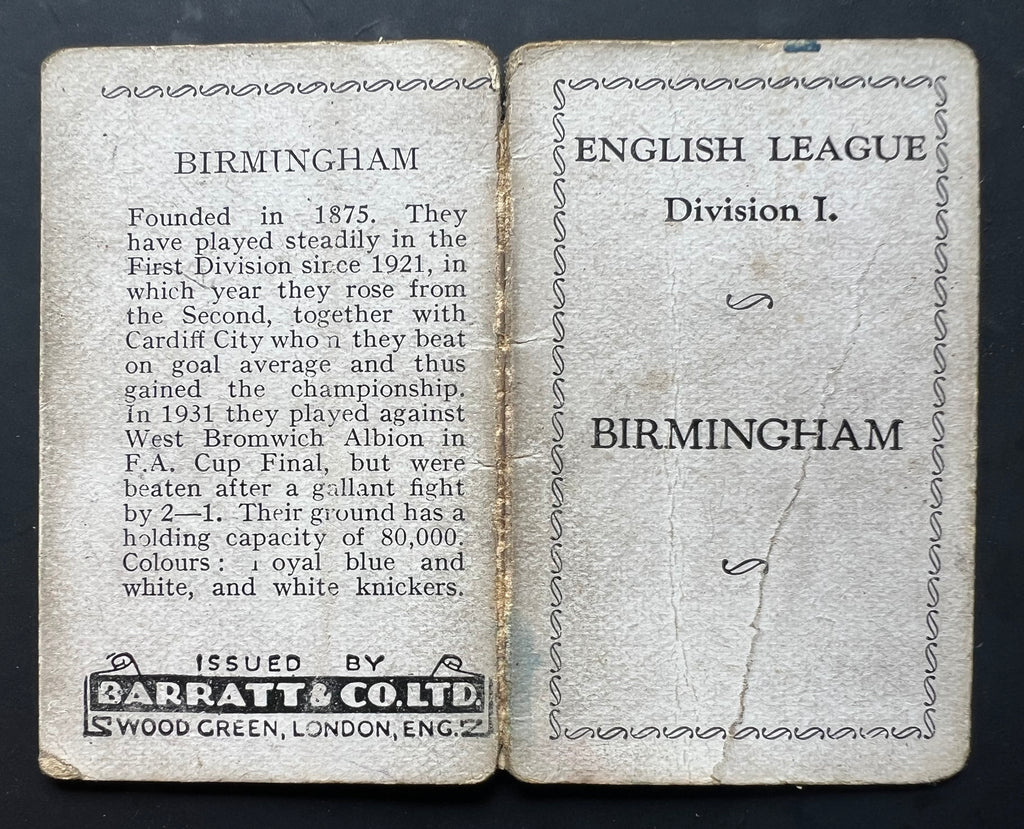 BIRMINGHAM
Founded in 1875. They
have played steadily in the
First Division since 1921, in
which year they rose from
the Second, together with
Cardiff City whom they beat
on goal average and thus
gained the championship.
In 1931 they played against
West Bromwich Albion in
F.A. Cup Final, but were
beaten after a gallant fight
by 2—1. Their ground has a
holding capacity of 80,000.
Colours: royal blue and
white, and white knickers.
ISSUED BY
BARRATT & CO. LTD.
WOOD GREEN, LONDON, ENG.
ENGLISH LEAGUE
Division I.
BIRMINGHAM